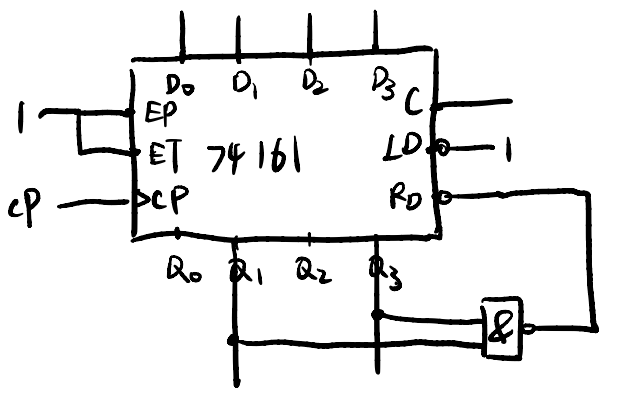 D0 D1 D2 D3
1 EP C
ET 74161 LD 1
CP CP RD
Q0 Q1 Q2 Q3
&